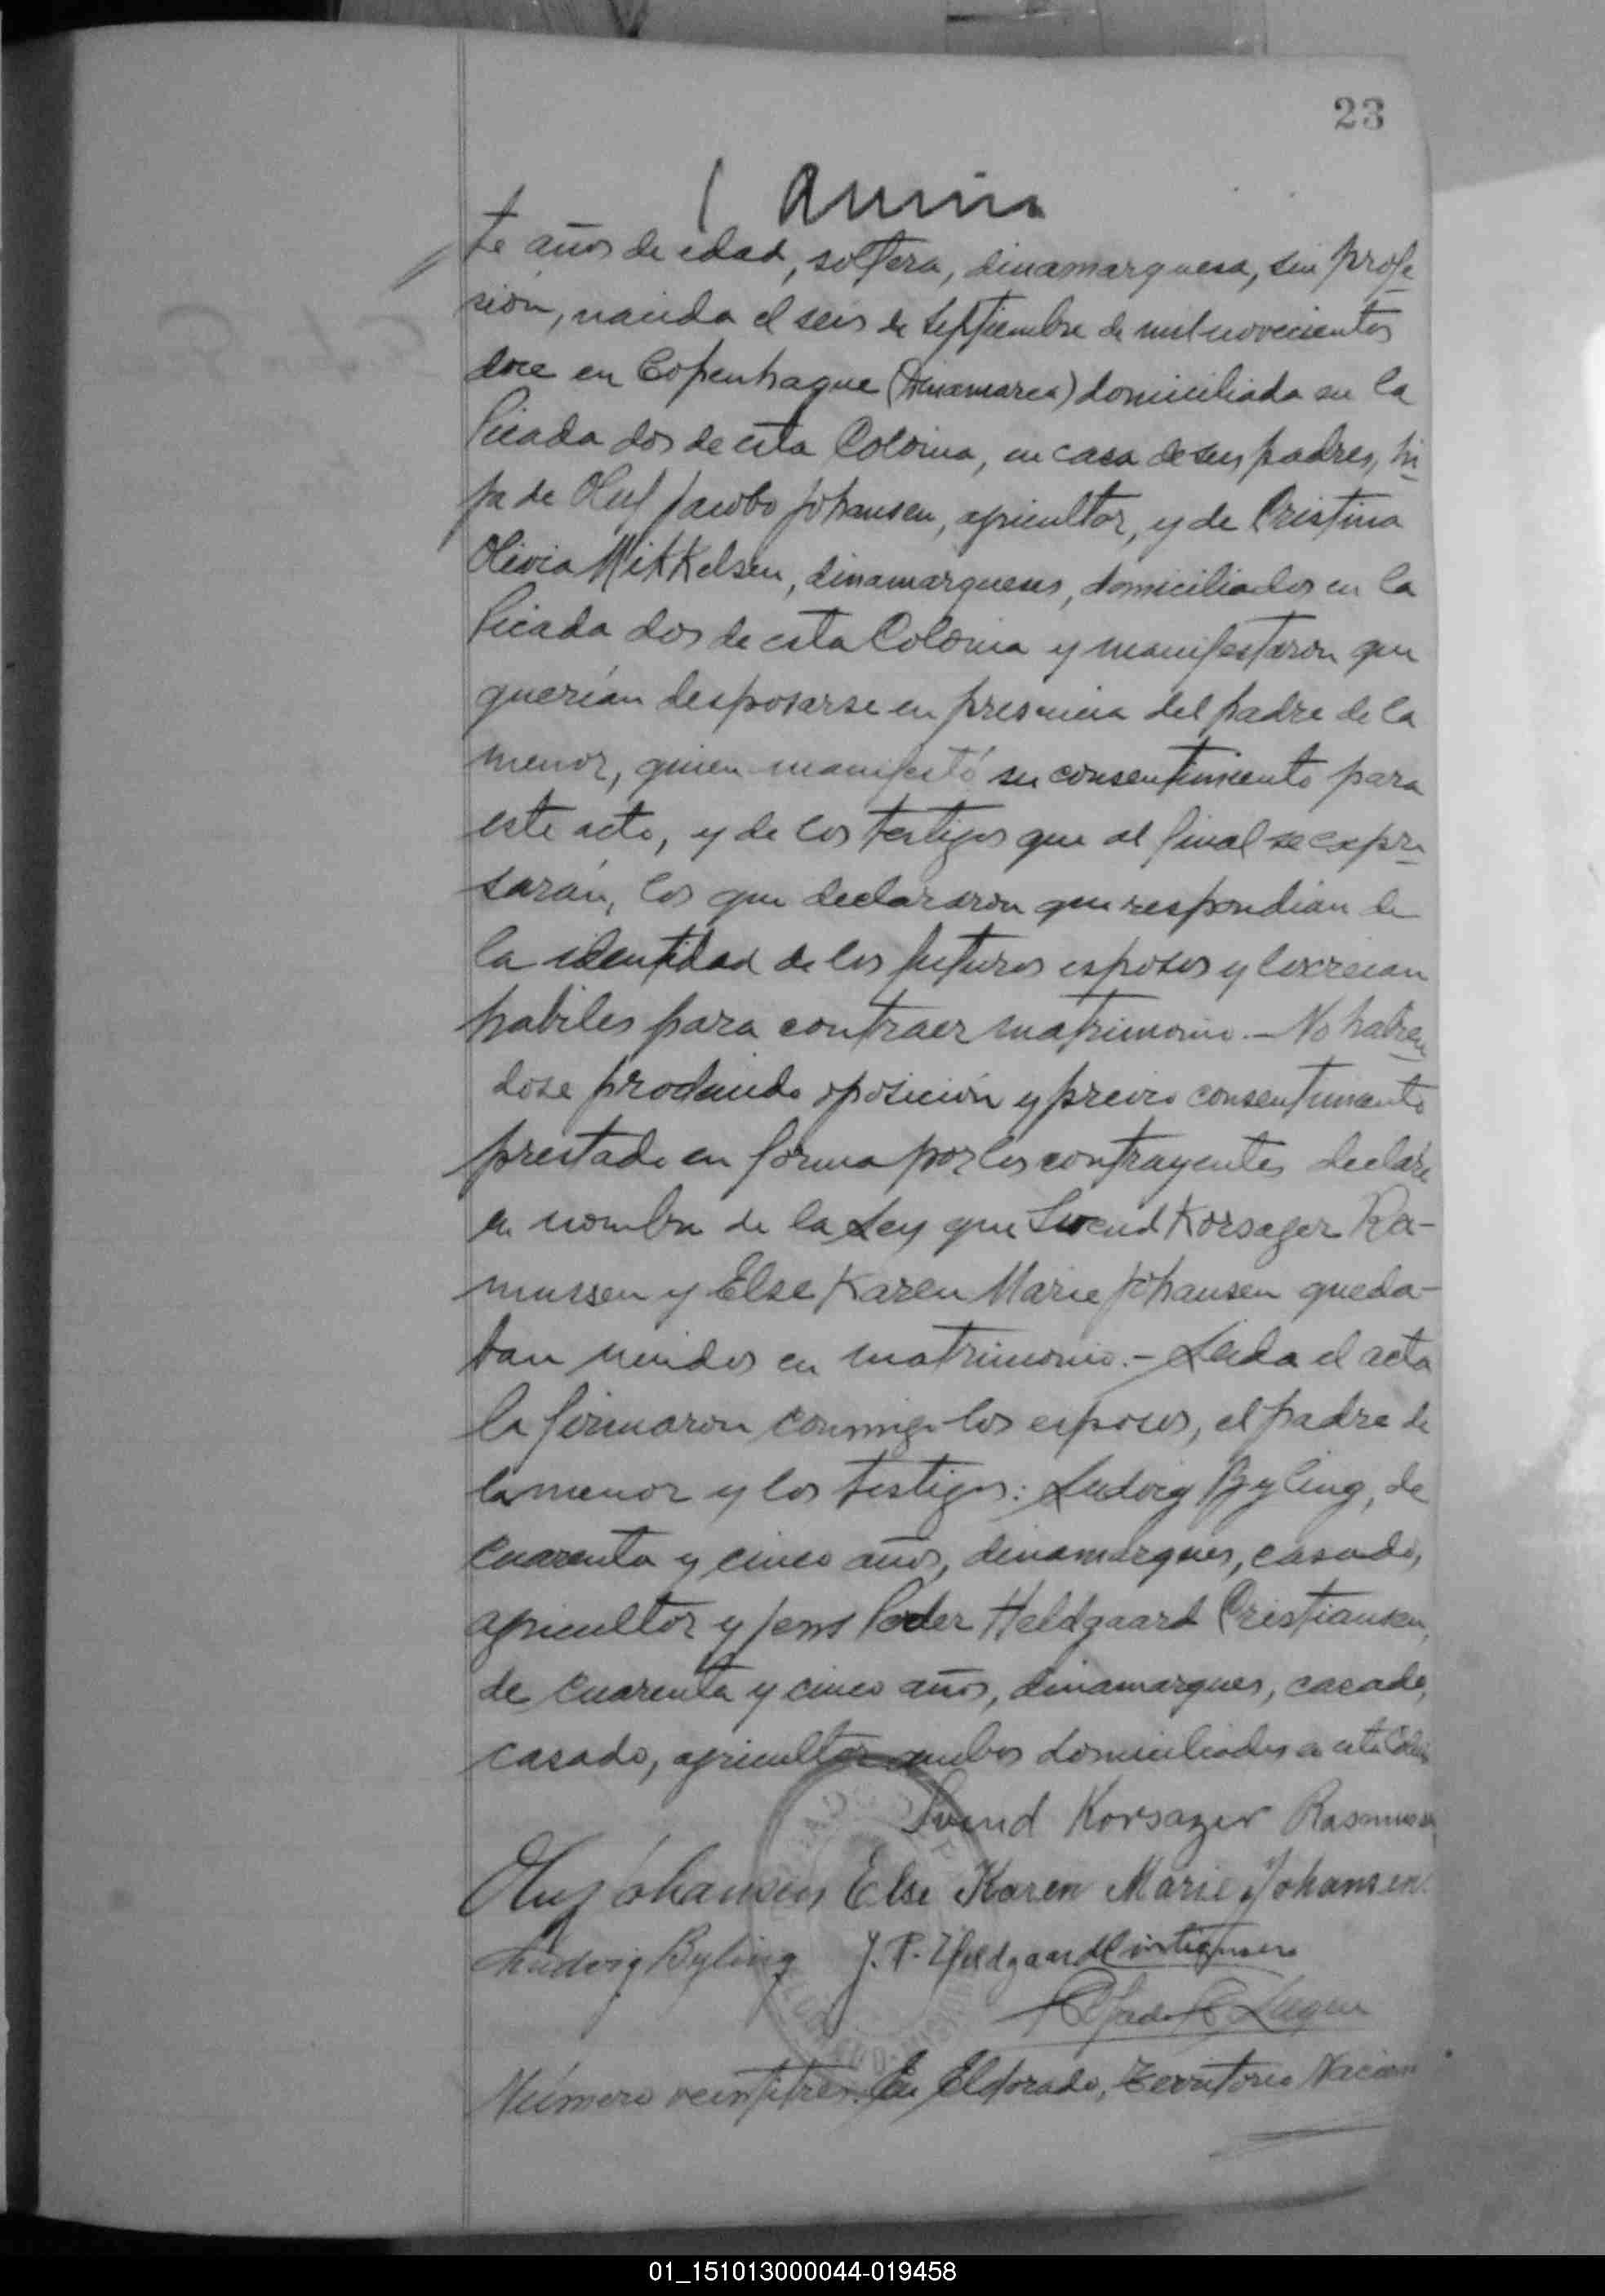 23
te años de edad, soltera, dinamarquesa, sin profe
sión, nacida el seis de septiembre de mil novecientos
doce en Copenhague (Dinamarca) domiciliada en la
Picada dos de esta Colonia, en casa de sus padres, hi
ja de Oluf Jacobo Johansen, agricultor, y de Cristina
Olivia Mikkelsen, dinamarqueses, domiciliados en la
Picada dos de esta Colonia y manifestaron que
querían desposarse en presencia del padre de la
menor, quien manifestó su consentimiento para
este acto, y de los testigos que al final se expre
sarán, los que declararon que respondían de
la identidad de los futuros esposos y los creían
habiles para contraer matrimonio.- No habien
dose producido oposición y previo consentimiento
prestado en forma por los contrayentes declaré
en nombre de la Ley que Svend Korsager Ra-
mussen y Else Karen Marie Johansen queda-
ban unidos en matrimonio.- Leida el acta
la firmaron conmigo los esposos, el padre de
la menor y los testigos: Ludvig Byling, de
cuarenta y cinco años, dinamarques, casado,
agricultor y Jens Peder Heldgaard Cristiansen,
de cuarenta y cinco años, dinamarques, casado,
casado, agricultor ambos domiciliados en esta Colonia
Svend Korsager Rasmussen
Oluf Johansen Else Karen Marie Johansen
Ludvig Byling J. P. Heldgaard Cristiansen
Alfredo
Número veintitres. En Eldorado, Territorio Nacion
01_151013000044-019458